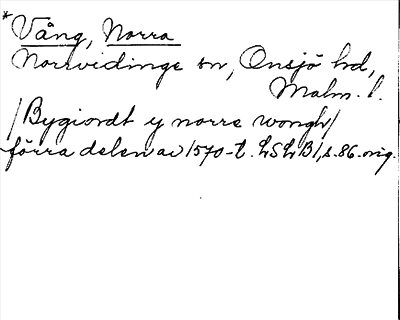 * Vång, Norra
Norrvidinge sn, Onsjö hd,
Malm. l.
/Bygiordt y norre wongh/
förra delen av 1570-t. LSLB1, s. 86. orig.